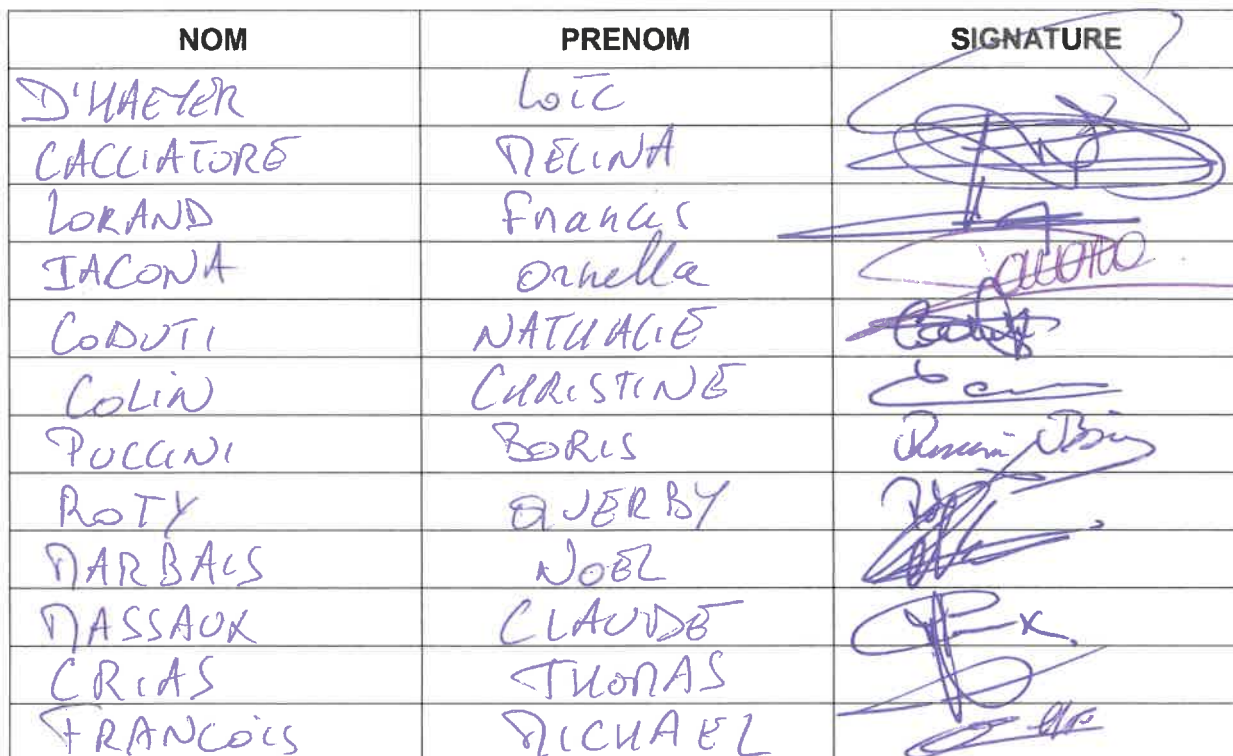 NOM PRENOM SIGNATURE
D'HAEYER Loïc
CACCIATORE MELINA
LORAND Francis
IACONA Ornella
CODUTI NATHALIE
COLIN CHRISTINE
PUCCINI BORIS
ROTY QUERBY
MARBAIS NOEL
MASSAUX CLAUDE
CRIAS THOMAS
FRANCOIS MICHAEL